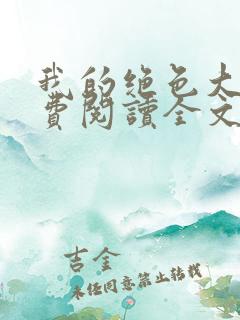 我的绝色大
費閱讀全文
吉金
未经同意禁止转载